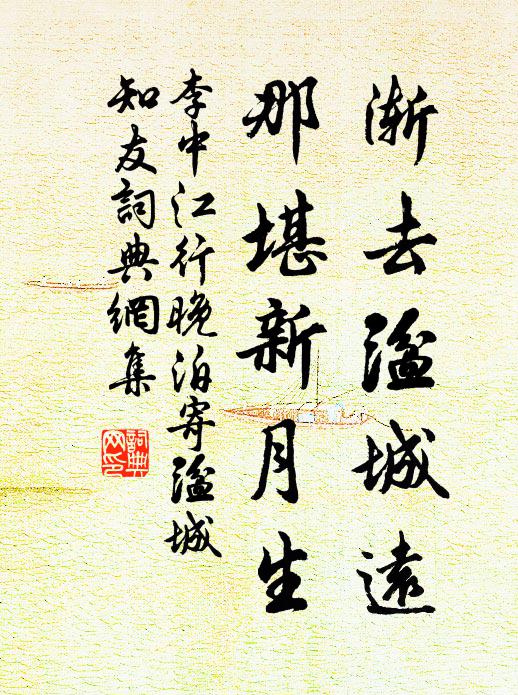 渐去湓城遠
那堪新月生
李中江行晚泊寄湓城
知友詞典網集
詞典
网印